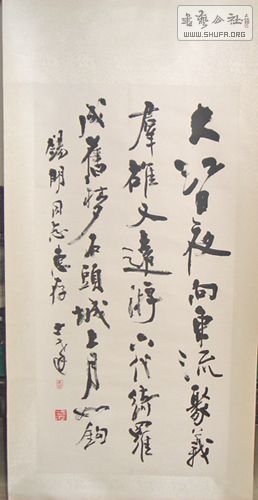 大江日夜向东流聚義
羣雄又遠游六代绮羅
成舊梦石頭城上月如鈎
錫明同志惠存
書藝公社
WWW.SHUFA.ORG